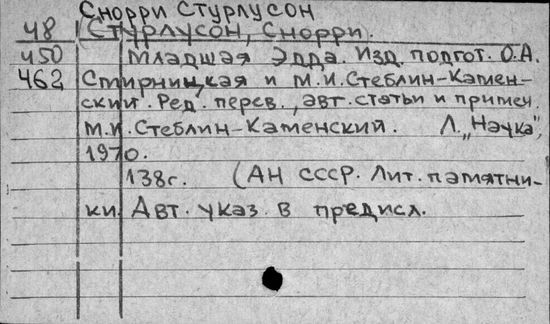 Снорри Стурлусон
48 (Стурлусон, Снорри.
450 Младшая Эдда. Изд. подгот. О.А.
462 Смирницкая и М.И. Стеблин-Камен-
ский. Ред. перев., авт. статьи и примеч.
М.И. Стеблин-Каменский. Л. „Наука",
1970.
138с. (АН СССР. Лит. памятни-
ки. Авт. указ. в предисл.